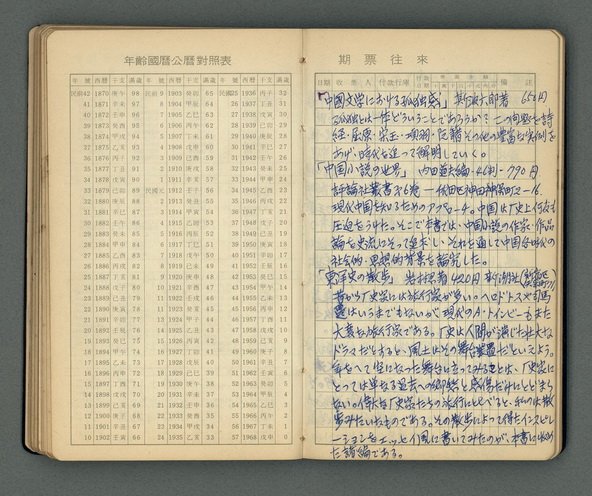 年齡國曆公曆對照表
年 號 西曆 干支 滿歲 年 號 西曆 干支 滿歲 年 號 西曆 干支 滿歲
民前42 1870 庚午 98 民前 9 1903 癸卯 65 民國25 1936 丙子 32
41 1871 辛未 97 8 1904 甲辰 64 26 1937 丁丑 31
40 1872 壬申 96 7 1905 乙巳 63 27 1938 戊寅 30
39 1873 癸酉 95 6 1906 丙午 62 28 1939 己卯 29
38 1874 甲戌 94 5 1907 丁未 61 29 1940 庚辰 28
37 1875 乙亥 93 4 1908 戊申 60 30 1941 辛巳 27
36 1876 丙子 92 3 1909 己酉 59 31 1942 壬午 26
35 1877 丁丑 91 2 1910 庚戌 58 32 1943 癸未 25
34 1878 戊寅 90 1 1911 辛亥 57 33 1944 甲申 24
33 1879 己卯 89 民國元 1912 壬子 56 34 1945 乙酉 23
32 1880 庚辰 88 2 1913 癸丑 55 35 1946 丙戌 22
31 1881 辛巳 87 3 1914 甲寅 54 36 1947 丁亥 21
30 1882 壬午 86 4 1915 乙卯 53 37 1948 戊子 20
29 1883 癸未 85 5 1916 丙辰 52 38 1949 己丑 19
28 1884 甲申 84 6 1917 丁巳 51 39 1950 庚寅 18
27 1885 乙酉 83 7 1918 戊午 50 40 1951 辛卯 17
26 1886 丙戌 82 8 1919 己未 49 41 1952 壬辰 16
25 1887 丁亥 81 9 1920 庚申 48 42 1953 癸巳 15
24 1888 戊子 80 10 1921 辛酉 47 43 1954 甲午 14
23 1889 己丑 79 11 1922 壬戌 46 44 1955 乙未 13
22 1890 庚寅 78 12 1923 癸亥 45 45 1956 丙申 12
21 1891 辛卯 77 13 1924 甲子 44 46 1957 丁酉 11
20 1892 壬辰 76 14 1925 乙丑 43 47 1958 戊戌 10
19 1893 癸巳 75 15 1926 丙寅 42 48 1959 己亥 9
18 1894 甲午 74 16 1927 丁卯 41 49 1960 庚子 8
17 1895 乙未 73 17 1928 戊辰 40 50 1961 辛丑 7
16 1896 丙申 72 18 1929 己巳 39 51 1962 壬寅 6
15 1897 丁酉 71 19 1930 庚午 38 52 1963 癸卯 5
14 1898 戊戌 70 20 1931 辛未 37 53 1964 甲辰 4
13 1899 己亥 69 21 1932 壬申 36 54 1965 乙巳 3
12 1900 庚子 68 22 1933 癸酉 35 55 1966 丙午 2
11 1901 辛丑 67 23 1934 甲戌 34 56 1967 丁未 1
10 1902 壬寅 66 24 1935 乙亥 33 57 1968 戊申 0
期票往來
日期 收票人 付款行庫 備註
「中國文学における孤独感」 斯波六郎著 650円
孤独とは一体どういうことであろうか？この問題を詩
経・屈原・宋玉・項羽・阮籍その他の豊富な実例を
あげ、時代を追って解明していく。
「中国小説の世界」 内田道夫編・46判・790円
評論社叢書才6巻 千代田区神田神保町2-16.
現代中国を知るためのアプローチ。中国は丁史上何度も
圧迫をうけた。そこで本書では、中国小説の作家・作品
論を史流にそって追求し、それを通して中国各時代の
社会的・思想的背景を論究した。
「東洋史の散歩」 岩村忍著 420円 新潮社
昔から丁史家には旅行家が多い。ヘロドトスや司馬
遷はいうまでもないが、現代のA・トインビーもまた
大変な旅行家である。丁史は人間が演じた壮大な
ドラマだとすると、風土はその舞台装置だといえよう。
年をへて空になった舞台に立ってみることは、丁史家に
とっては単なる過去への郷愁と感傷だけにとどまら
ない。偉大な丁史家たちの旅行に比べると、私のは散
歩みたいなものである。その散歩によって得たインスピレ
ーションをエッセイ風に書いてみたのが、本書に収め
た諸編である。